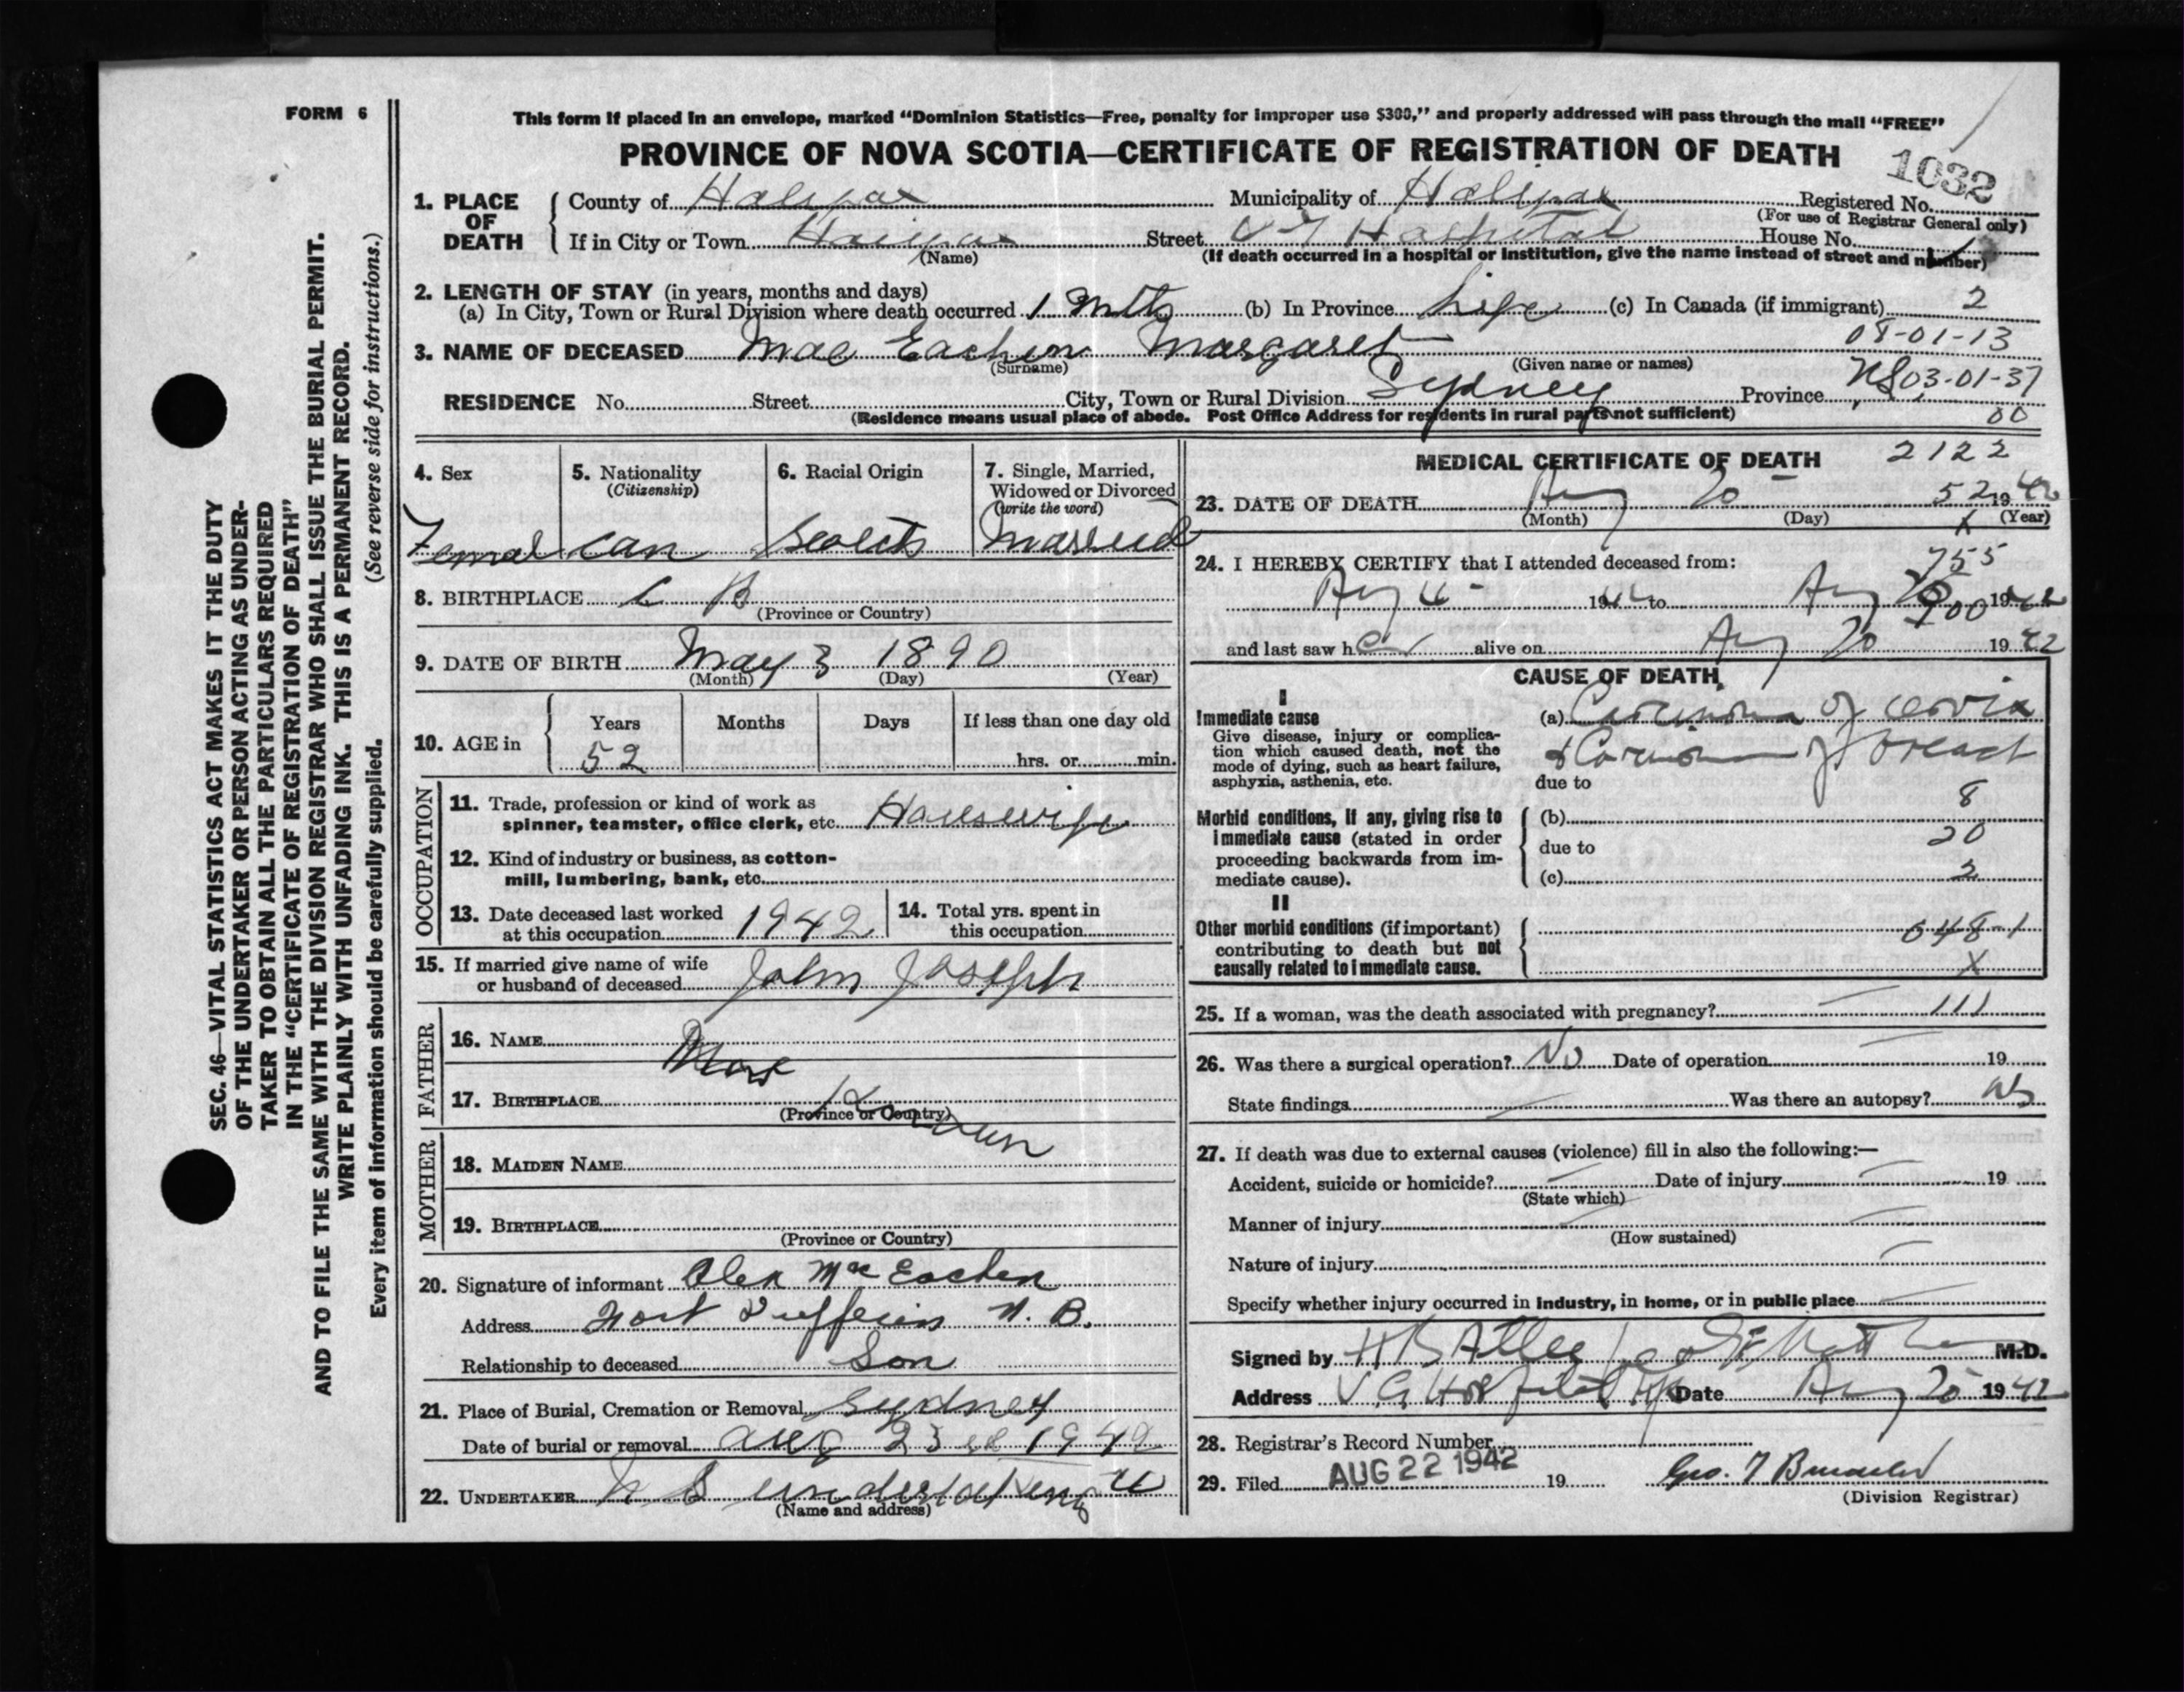 FORM 6
This form if placed in an envelope, marked “Dominion Statistics—Free, penalty for improper use $300,” and properly addressed will pass through the mail “FREE”
PROVINCE OF NOVA SCOTIA—CERTIFICATE OF REGISTRATION OF DEATH
1032
1. PLACE OF DEATH County of Halifax Municipality of Halifax Registered No.
(For use of Registrar General only)
If in City or Town Halifax Street V G Hospital House No.
(Name) (If death occurred in a hospital or institution, give the name instead of street and number)
2. LENGTH OF STAY (in years, months and days)
(a) In City, Town or Rural Division where death occurred 1 Mth (b) In Province Life (c) In Canada (if immigrant) 2
08-01-13
3. NAME OF DECEASED Mac Eachern Margaret
(Surname) (Given name or names)
RESIDENCE No. Street City, Town or Rural Division Sydney Province N.S. 03-01-37
(Residence means usual place of abode. Post Office Address for residents in rural parts not sufficient) 00
4. Sex Female
5. Nationality (Citizenship) Can
6. Racial Origin Scotch
7. Single, Married, Widowed or Divorced (write the word) Married
8. BIRTHPLACE C B
(Province or Country)
9. DATE OF BIRTH May 3 1890
(Month) (Day) (Year)
10. AGE in Years Months Days If less than one day old
52 hrs. or min.
OCCUPATION
11. Trade, profession or kind of work as
spinner, teamster, office clerk, etc. Housewife
12. Kind of industry or business, as cotton-
mill, lumbering, bank, etc.
13. Date deceased last worked
at this occupation 1942
14. Total yrs. spent in
this occupation
15. If married give name of wife
or husband of deceased John Joseph
FATHER
16. NAME
17. BIRTHPLACE
(Province or Country)
MOTHER
18. MAIDEN NAME
19. BIRTHPLACE
(Province or Country)
20. Signature of informant Alex MacEachen
Address Fort Dufferin N. B.
Relationship to deceased Son
21. Place of Burial, Cremation or Removal Sydney
Date of burial or removal Aug 23 1942
22. UNDERTAKER N S Undertaking
(Name and address)
MEDICAL CERTIFICATE OF DEATH 2122
23. DATE OF DEATH Aug 20 52 1942
(Month) (Day) (Year)
X
24. I HEREBY CERTIFY that I attended deceased from: 755
Aug 4 1942 to Aug 20 1942
900
and last saw her alive on Aug 20 1942
CAUSE OF DEATH
I
Immediate cause
Give disease, injury or complica-
tion which caused death, not the
mode of dying, such as heart failure,
asphyxia, asthenia, etc.
(a) Carcinoma of cervix
& Carcinoma of breast
due to
8
Morbid conditions, if any, giving rise to
immediate cause (stated in order
proceeding backwards from im-
mediate cause).
(b)
due to 20
(c) 2
II
Other morbid conditions (if important)
contributing to death but not
causally related to immediate cause.
048-1
X
25. If a woman, was the death associated with pregnancy? 111
26. Was there a surgical operation? No Date of operation 19
State findings Was there an autopsy? No
27. If death was due to external causes (violence) fill in also the following:—
Accident, suicide or homicide? Date of injury 19
(State which)
Manner of injury
(How sustained)
Nature of injury
Specify whether injury occurred in industry, in home, or in public place
Signed by H B Atlee M.D.
Address V. G. Hospital Hfx Date Aug 20 1942
28. Registrar's Record Number
29. Filed AUG 22 1942 19
(Division Registrar)
SEC. 46—VITAL STATISTICS ACT MAKES IT THE DUTY
OF THE UNDERTAKER OR PERSON ACTING AS UNDER-
TAKER TO OBTAIN ALL THE PARTICULARS REQUIRED
IN THE “CERTIFICATE OF REGISTRATION OF DEATH”
AND TO FILE THE SAME WITH THE DIVISION REGISTRAR WHO SHALL ISSUE THE BURIAL PERMIT.
WRITE PLAINLY WITH UNFADING INK. THIS IS A PERMANENT RECORD.
Every item of information should be carefully supplied. (See reverse side for instructions.)